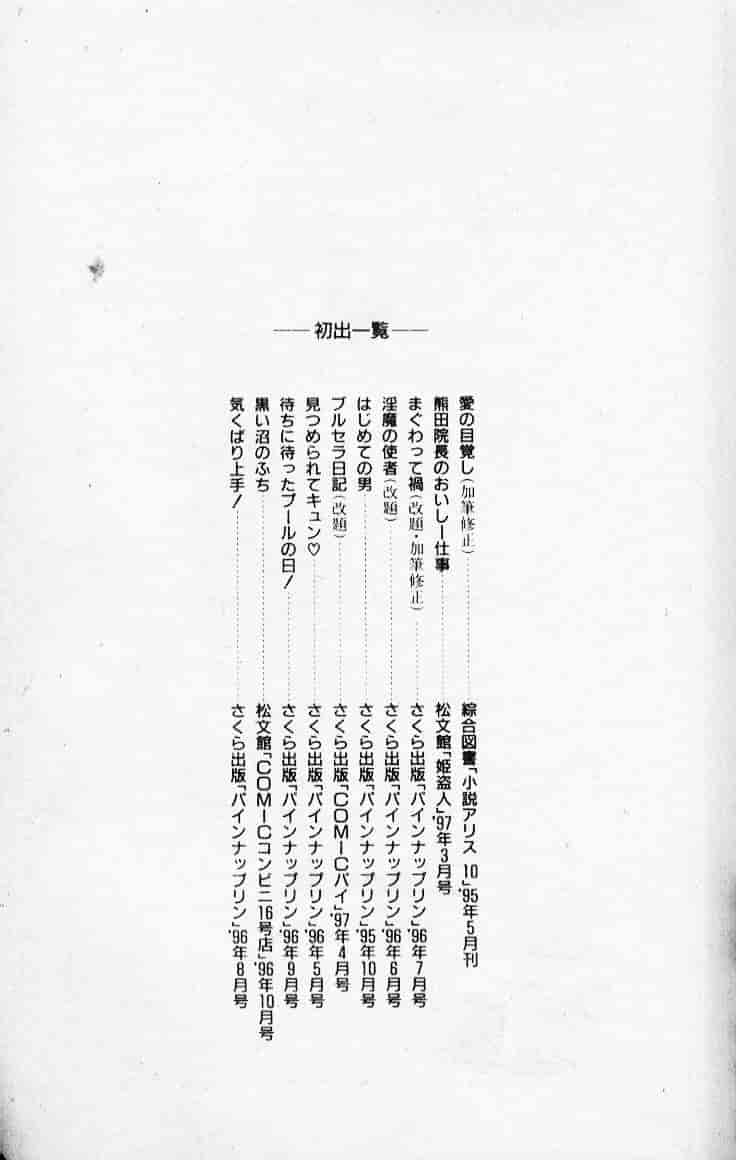 初出一覧
愛の目覚し(加筆修正)…………綜合図書「小説アリス 10」'95年5月刊
熊田院長のおいしー仕事…………松文館「姫盗人」'97年3月号
まぐわって禍(改題・加筆修正)…………さくら出版「パインナップリン」'96年7月号
淫魔の使者(改題)…………さくら出版「パインナップリン」'96年6月号
はじめての男…………さくら出版「パインナップリン」'95年10月号
ブルセラ日記(改題)…………さくら出版「COMICパイ」'97年4月号
見つめられてキュン♡…………さくら出版「パインナップリン」'96年5月号
待ちに待ったプールの日!…………さくら出版「パインナップリン」'96年9月号
黒い沼のふち…………松文館「COMICコンビニ16号店」'96年10月号
気くばり上手!…………さくら出版「パインナップリン」'96年8月号